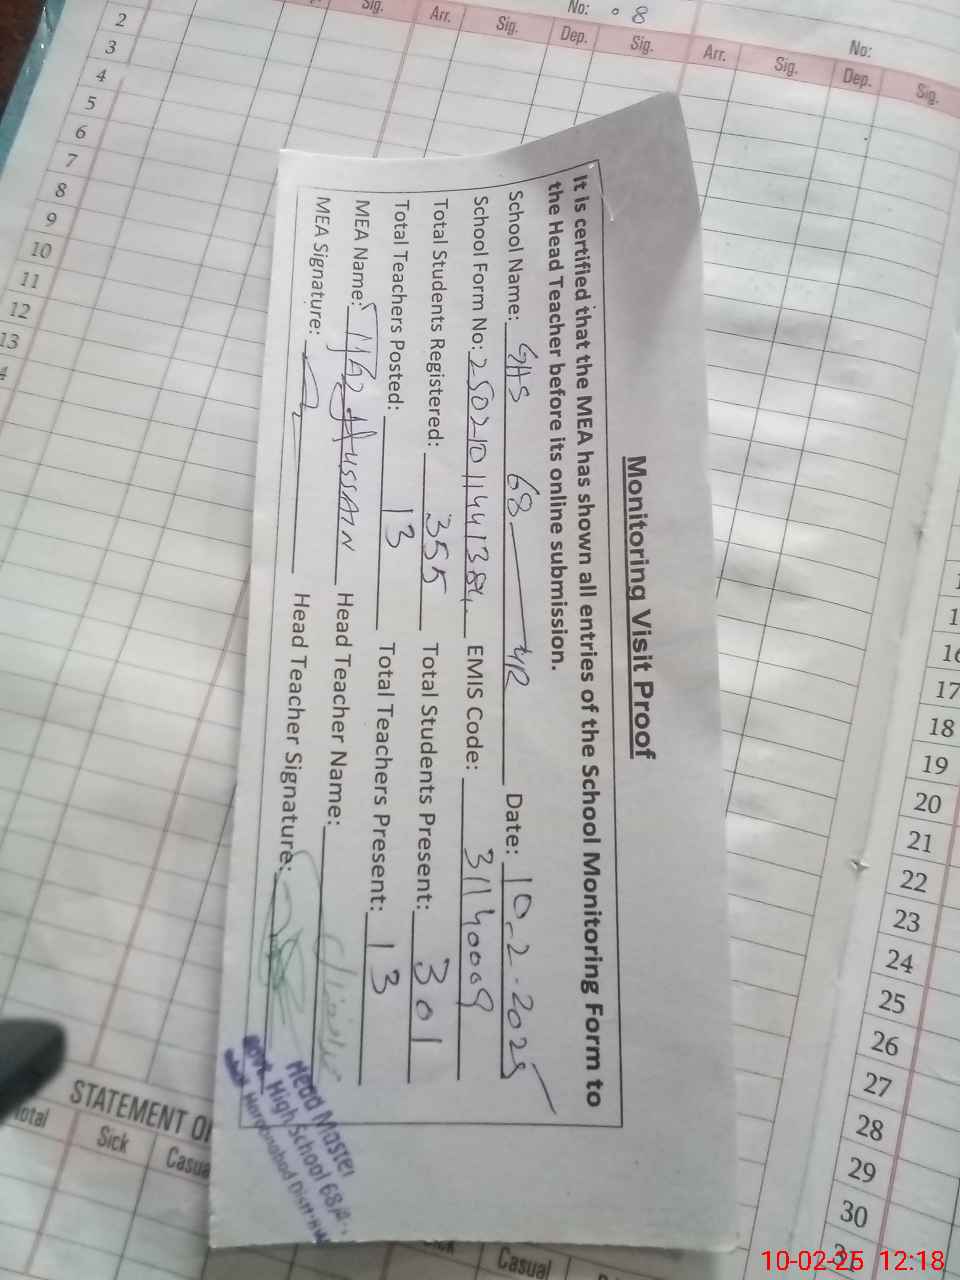 No: .8
Sig. Arr. Sig. Dep. Sig. Arr. Sig. Dep. Sig.
No:
2
3
4
5
6
7
8
9
10
11
12
13
Monitoring Visit Proof
It is certified that the MEA has shown all entries of the School Monitoring Form to
the Head Teacher before its online submission.
School Name: GHS 68 4R Date: 10-2-2025
School Form No: EMIS Code: 31140009
Total Students Registered: 355 Total Students Present: 301
Total Teachers Posted: 13 Total Teachers Present: 13
MEA Name: HUSSAIN Head Teacher Name:
MEA Signature: Head Teacher Signature:
Head Master
Govt. High School 68
Haroonabad Distt.
16
17
18
19
20
21
22
23
24
25
26
27
28
29
30
31
STATEMENT
Total Sick Casual
Sick Casual
10-02-25 12:18